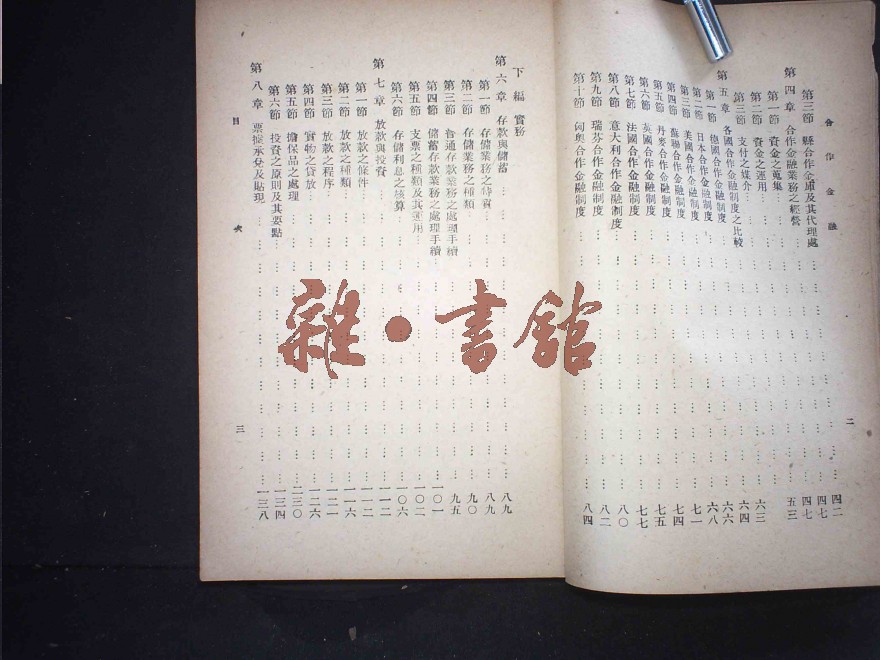 合作金融
二
第三節 縣合作金庫及其代理處……四二
第四章 合作金融業務之經營……四七
第一節 資金之蒐集……四七
第二節 資金之運用……五三
第三節 支付之媒介……六三
第五章 各國合作金融制度之比較……六四
第一節 德國合作金融制度……六六
第二節 日本合作金融制度……六六
第三節 美國合作金融制度……六八
第四節 蘇聯合作金融制度……七一
第五節 丹麥合作金融制度……七四
第六節 英國合作金融制度……七五
第七節 法國合作金融制度……七七
第八節 意大利合作金融制度……八〇
第九節 瑞芬合作金融制度……八二
第十節 匈奧合作金融制度……八四
下編 實務
第六章 存款與儲蓄……八九
第一節 存儲業務之特質……八九
第二節 存儲業務之種類……九〇
第三節 普通存款業務之處理手續……九五
第四節 儲蓄存款業務之處理手續……一〇一
第五節 支票之種類及其運用……一〇二
第六節 存儲利息之核算……一〇六
第七章 放款與投資……一一二
第一節 放款之條件……一一二
第二節 放款之種類……一一六
第三節 放款之程序……一二一
第四節 實物之貸放……一二六
第五節 擔保品之處理……一三〇
第六節 投資之原則及其要點……一三四
第八章 票據承兌及貼現……一三八
目次
三
雜·書館